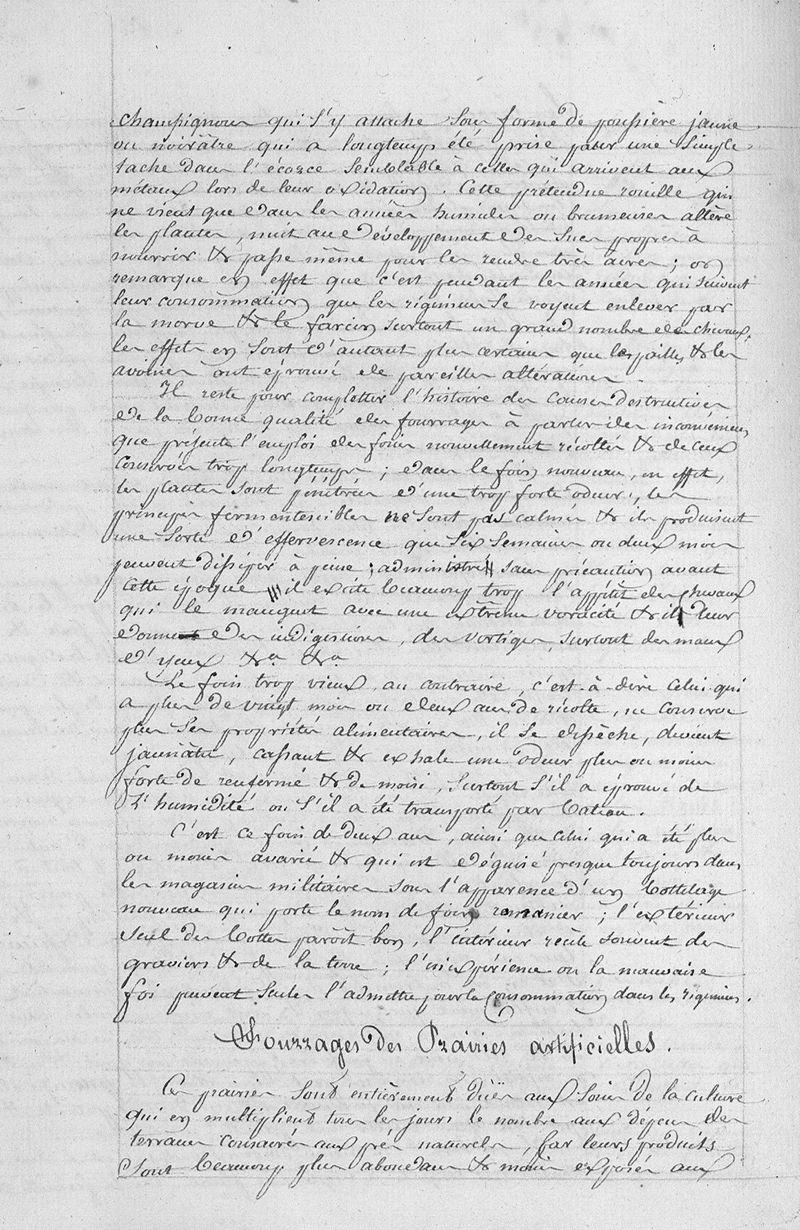 champignons qui s'y attache sous forme de poussière jaune
ou noirâtre qui a longtemps été prise pour une simple
tache dans l'écorce semblable à celles qui arrivent aux
métaux lors de leur oxidation. Cette prétendue rouille qui
ne vient que dans les années humides ou brumeuses altère
les plantes, nuit au développement des sucs propres à
nourrir & passe même pour les rendre très âcres ; on
remarque en effet que c'est pendant les années qui suivent
leur consommation que les régimens se voyent enlever par
la morve & le farcin surtout un grand nombre de chevaux,
les effets en sont d'autant plus certains que les pailles & les
avoines ont éprouvé de pareilles altérations.
Il reste pour completter l'histoire des causes destructives
de la bonne qualité des fourrages à parler des inconvéniens
que présente l'emploi des foins nouvellement récoltés & de ceux
conservés trop longtemps ; dans le foin nouveau, en effet,
les plantes sont pénétrées d'une trop forte odeur, les
principes fermentescibles ne sont pas calmés & ils produisent
une sorte d'effervescence que six semaines ou deux mois
peuvent dissiper à peine ; administré sans précaution avant
cette époque il excite beaucoup trop l'appétit des chevaux
qui le mangent avec une extrême voracité & il leur
donne des indigestions, des vertiges, surtout des maux
d'yeux &a &a
Le foin trop vieux, au contraire, c'est-à-dire celui qui
a plus de vingt mois ou deux ans de récolte, ne conserve
plus ses propriétés alimentaires, il se dessèche, devient
jaunâtre, cassant & exhale une odeur plus ou moins
forte de renfermé & de moisi, surtout s'il a éprouvé de
l'humidité ou s'il a été transporté par bateau.
C'est ce foin de deux ans, ainsi que celui qui a été plus
ou moins avarié & qui est déguisé presque toujours dans
les magasins militaires sous l'apparence d'un bottelage
nouveau qui porte le nom de foin remanier ; l'extérieur
seul des bottes paroît bon, l'intérieur recèle souvent des
graviers & de la terre ; l'inexpérience ou la mauvaise
foi peuvent seules l'admettre pour la Consommation dans les régimens.
Fourrages des Prairies artificielles.
Ces prairies sont entièrement dües aux soins de la culture
qui en multiplient tous les jours le nombre aux dépens des
terraux consacrés aux prés naturels, Car leurs produits
sont beaucoup plus abondans & moins exposés aux